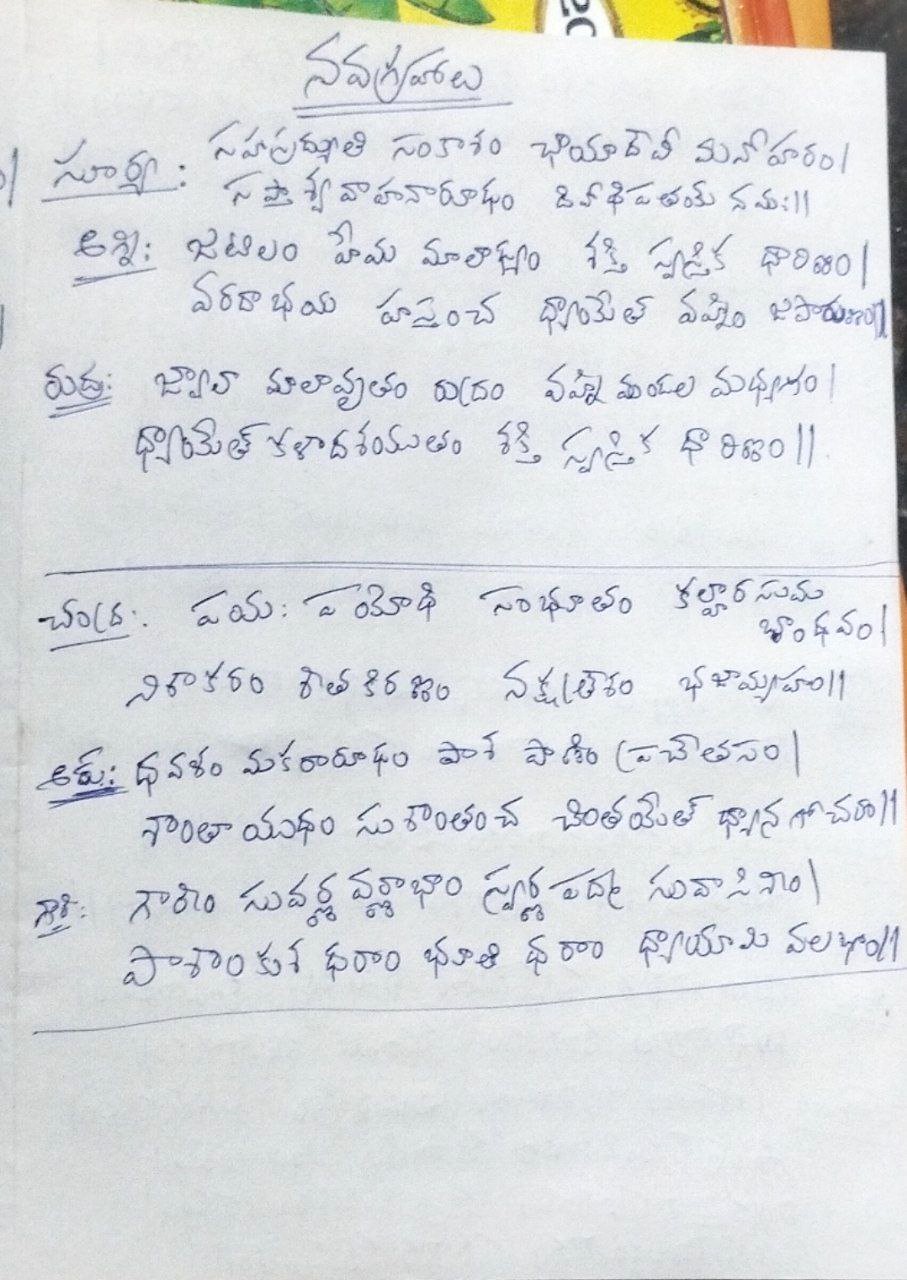 నవగ్రహాలు
సూర్య : సహస్రద్యుతి సంకాశం ఛాయాదేవీ మనోహరం|
సప్తాశ్వ వాహనారూఢం దివాధిపతయే నమః||
అగ్ని: జటిలం హేమ మాలాఖ్యం శక్తి స్వస్తిక ధారిణం|
వరదాభయ హస్తంచ ధ్యాయేత్ వహ్నిం జపారుణం||
రుద్ర: జ్వాలా మాలావృతం రుద్రం వహ్ని మండల మధ్యగం|
ధ్యాయేత్ కళాదశంయుతం శక్తి స్వస్తిక ధారిణం||
చంద్ర: పయః పయోధి సంభూతం కల్హార సుమ
బాంధవం|
నిశాకరం శీతకిరణం నక్షత్రేశం భజామ్యహం||
ధవళం మకరారూఢం పాశ పాణిం ప్రచేతసం|
శాంతాయుధం సుశాంతంచ చింతయేత్ ధ్యాన గోచరం||
గౌరి: గౌరీం సువర్ణ వర్ణాభాం స్వర్ణ పద్మ సువాసినీం|
పాశాంకుశ ధరాం భూతి ధరాం ధ్యాయామి